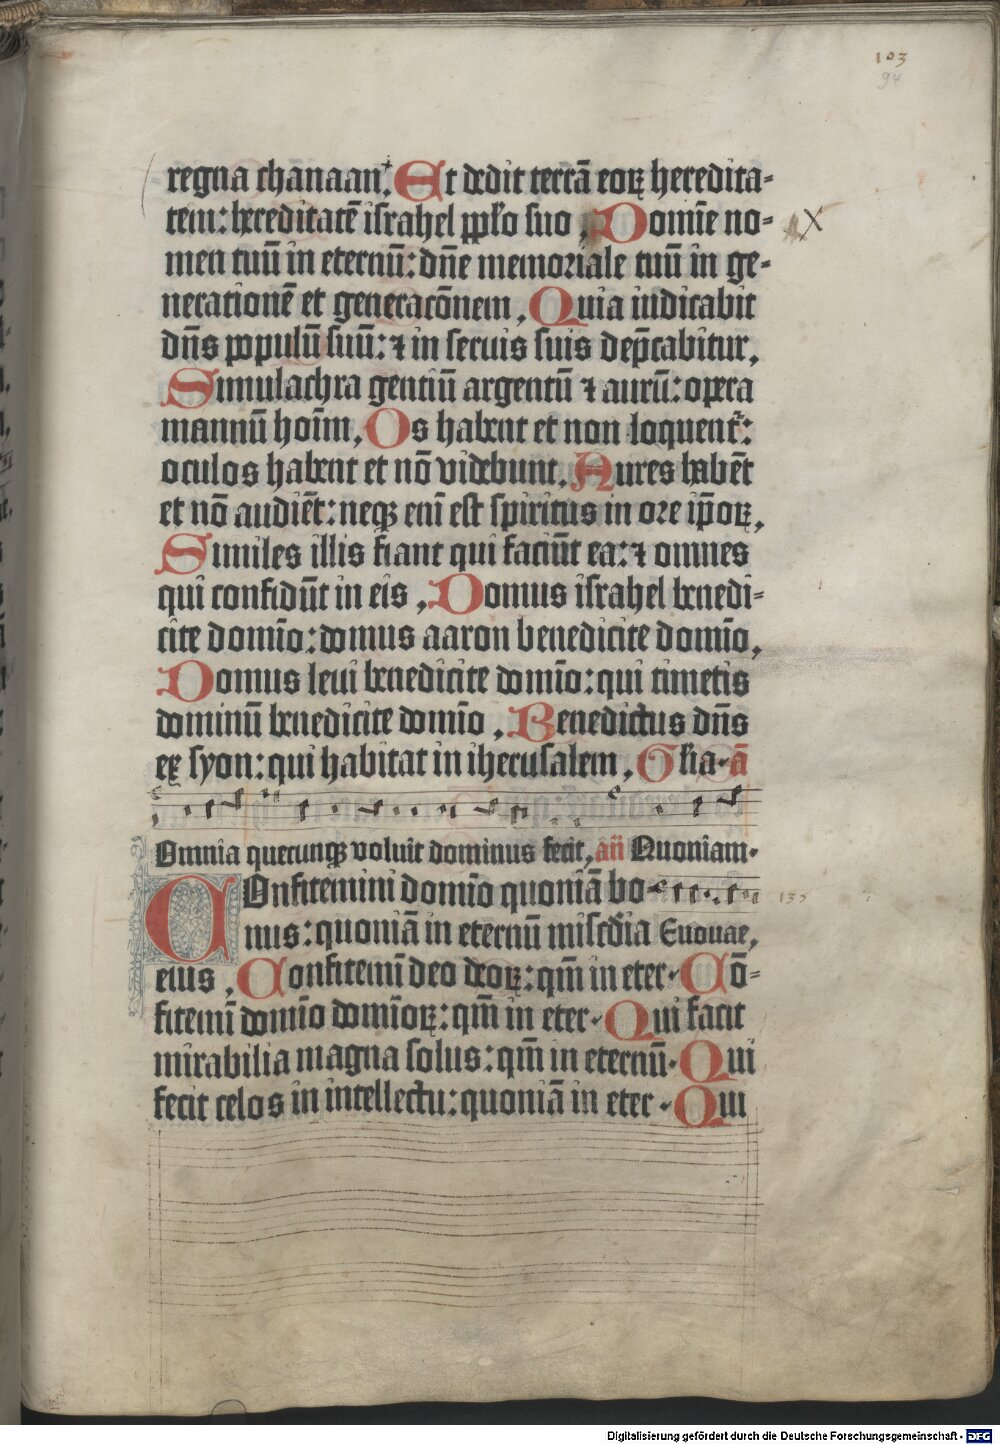 103
94
regna chanaan. Et dedit terrā eoꝝ heredita⸗
tem: hereditatē israhel pplo suo. Domīe no⸗
men tuū in eternū: dn̄e memoriale tuū in ge⸗
nerationē et generacōnem. Quia iudicabit
dn̄s populū suū: ⁊ in seruis suis dep̄cabitur.
Simulachra gentiū argentū ⁊ aurū: opera
manuū hoīm. Os habent et non loquent᷑:
oculos habent et nō videbunt. Aures habēt
et nō audiēt: neqꝫ enī est spiritus in ore ip̄oꝝ.
Similes illis fiant qui faciūt ea: ⁊ omnes
qui confidūt in eis. Domus israhel benedi⸗
cite domīo: domus aaron benedicite domīo.
Domus leui benedicite domīo: qui timetis
dominū benedicite domīo. Benedictus dn̄s
ex syon: qui habitat in iherusalem. Gl̄ia. ā
Omnia quecunqꝫ voluit dominus fecit. an̄ Quoniam.
COnfitemini domīo quoniā bo
nus: quoniā in eternū mis̄cdia Euouae.
eius. Confitemī deo deoꝝ: qm̄ in eter. Cō⸗
fitemī domīo domīoꝝ: qm̄ in eter. Qui facit
mirabilia magna solus: qm̄ in eternū. Qui
fecit celos in intellectu: quoniā in eter. Qui
Digitalisierung gefördert durch die Deutsche Forschungsgemeinschaft - DFG